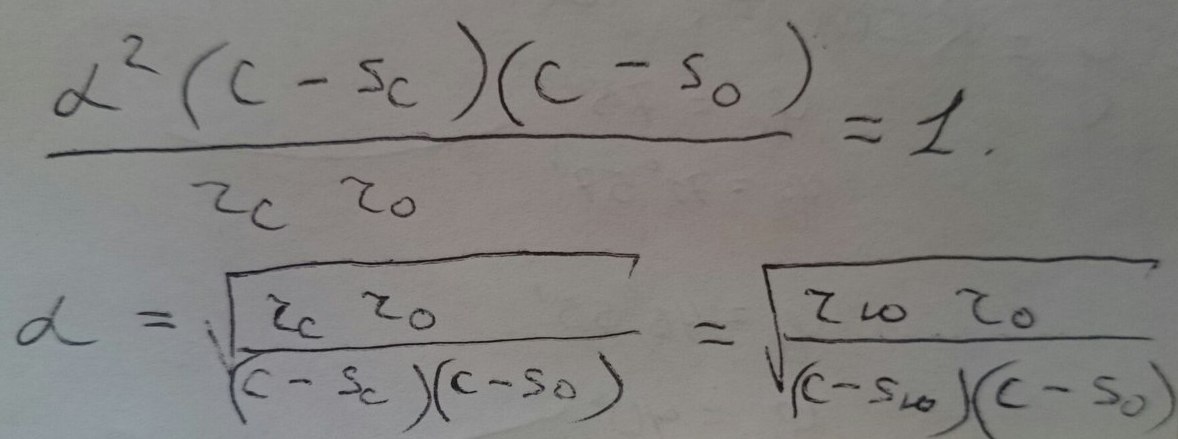 α² (c - s_c)(c - s_0) / r_c r_0 = 1.
α = √(r_c r_0 / (c - s_c)(c - s_0)) = √(r_ю r_0 / (c - s_ю)(c - s_0))